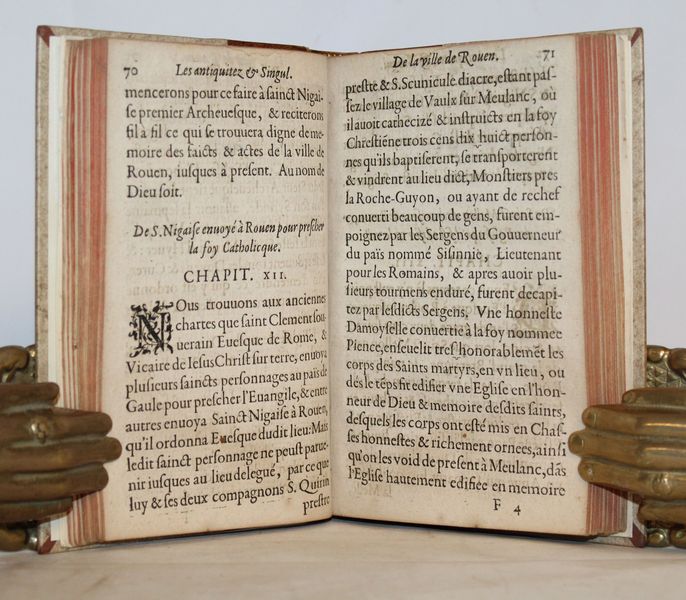 70 Les antiquitez & Singul.
mencerons pour ce faire à sainct Nigai-
se premier Archeuesque, & reciterons
fil à fil ce qui se trouuera digne de me-
moire des faicts & actes de la ville de
Rouen, iusques à present. Au nom de
Dieu soit.
De S. Nigaise enuoyé à Rouen pour prescher
la foy Catholicque.
CHAPIT. XII.
NOus trouuons aux anciennes
chartes que saint Clement sou-
uerain Euesque de Rome, &
Vicaire de Iesus Christ sur terre, enuoya
plusieurs saincts personnages au païs de
Gaule pour prescher l'Euangile, & entre
autres enuoya Sainct Nigaise à Rouen,
qu'il ordonna Euesque dudit lieu: Mais
ledit sainct personnage ne peust parue-
nir iusques au lieu delegué, par ce que
luy & ses deux compagnons S. Quirin
prestre
De la ville de Rouen. 71
prestre & S. Scunicule diacre, estant pas-
sez le village de Vaulx sur Meulanc, où
il auoit cathecizé & instruicts en la foy
Chrestiéne trois cens dix huict person-
nes qu'ils baptiserent, se transporterent
& vindrent au lieu dict, Monstiers pres
la Roche-Guyon, ou ayant de rechef
conuerti beaucoup de gens, furent em-
poignez par les Sergens du Gouuerneur
du païs nommé Sisinnie, Lieutenant
pour les Romains, & apres auoir plu-
sieurs tourmens enduré, furent decapi-
tez par lesdicts Sergens. Vne honneste
Damoyselle conuertie à la foy nommee
Pience, enseuelit tres-honorablemēt les
corps des Saints martyrs, en vn lieu, ou
dés le tēps fit edifier vne Eglise en l'hon-
neur de Dieu & memoire desdits saints,
desquels les corps ont esté mis en Chas-
ses honnestes & richement ornees, ainsi
qu'on les void de present à Meulanc, dās
l'Eglise hautement edifiee en memoire
F 4